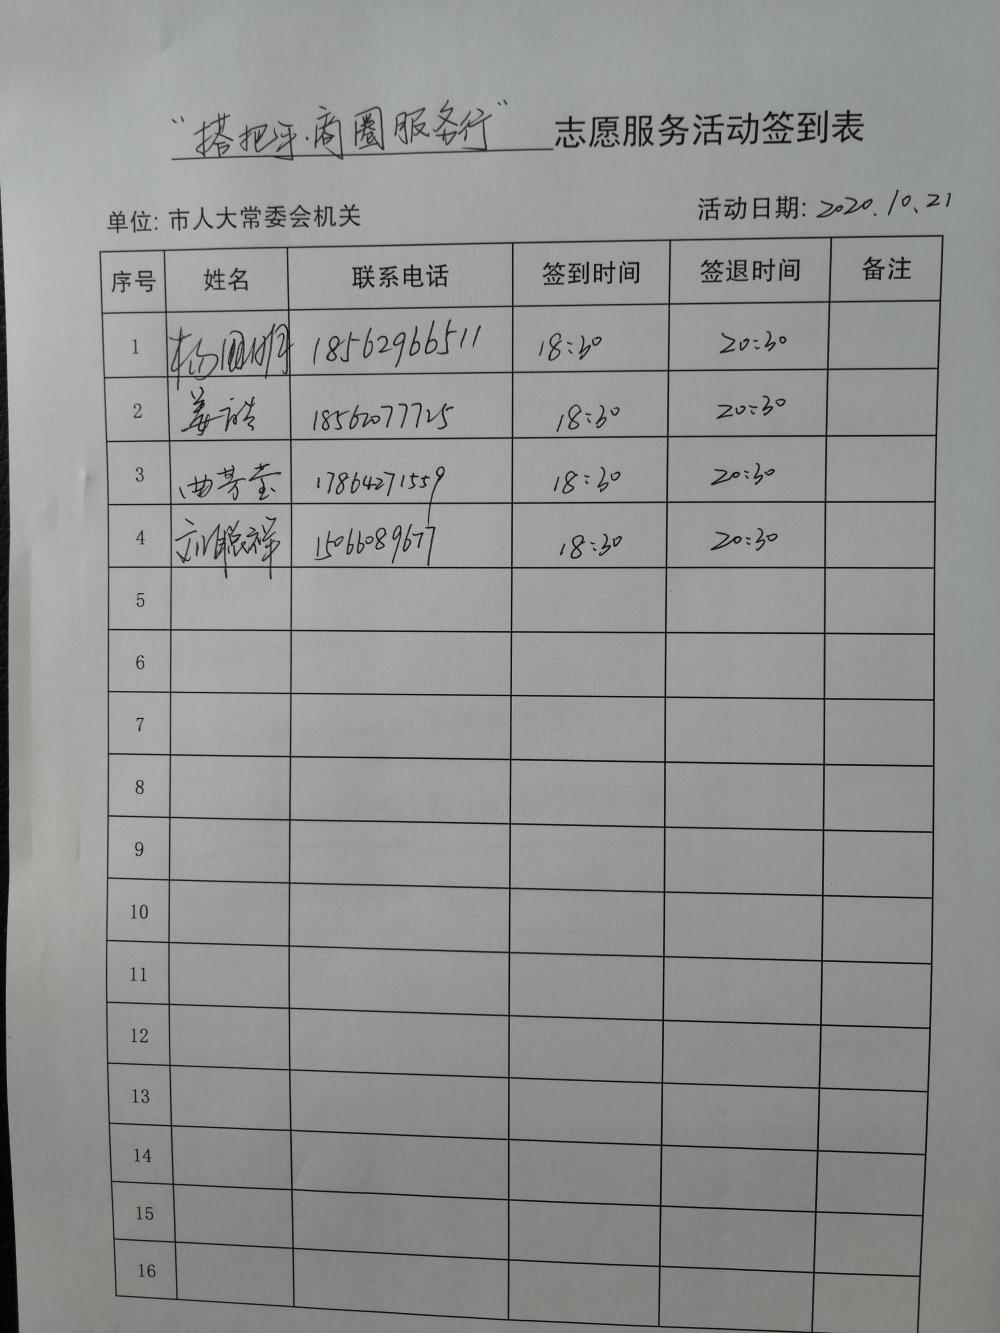 “搭把手·商圈服务行” 志愿服务活动签到表
单位: 市人大常委会机关 活动日期: 2020.10.21
序号 姓名 联系电话 签到时间 签退时间 备注
1 杨 18562966511 18:30 20:30
2 姜浩 18562077725 18:30 20:30
3 曲芳莹 17864271559 18:30 20:30
4 刘聪祥 15066089677 18:30 20:30
5
6
7
8
9
10
11
12
13
14
15
16